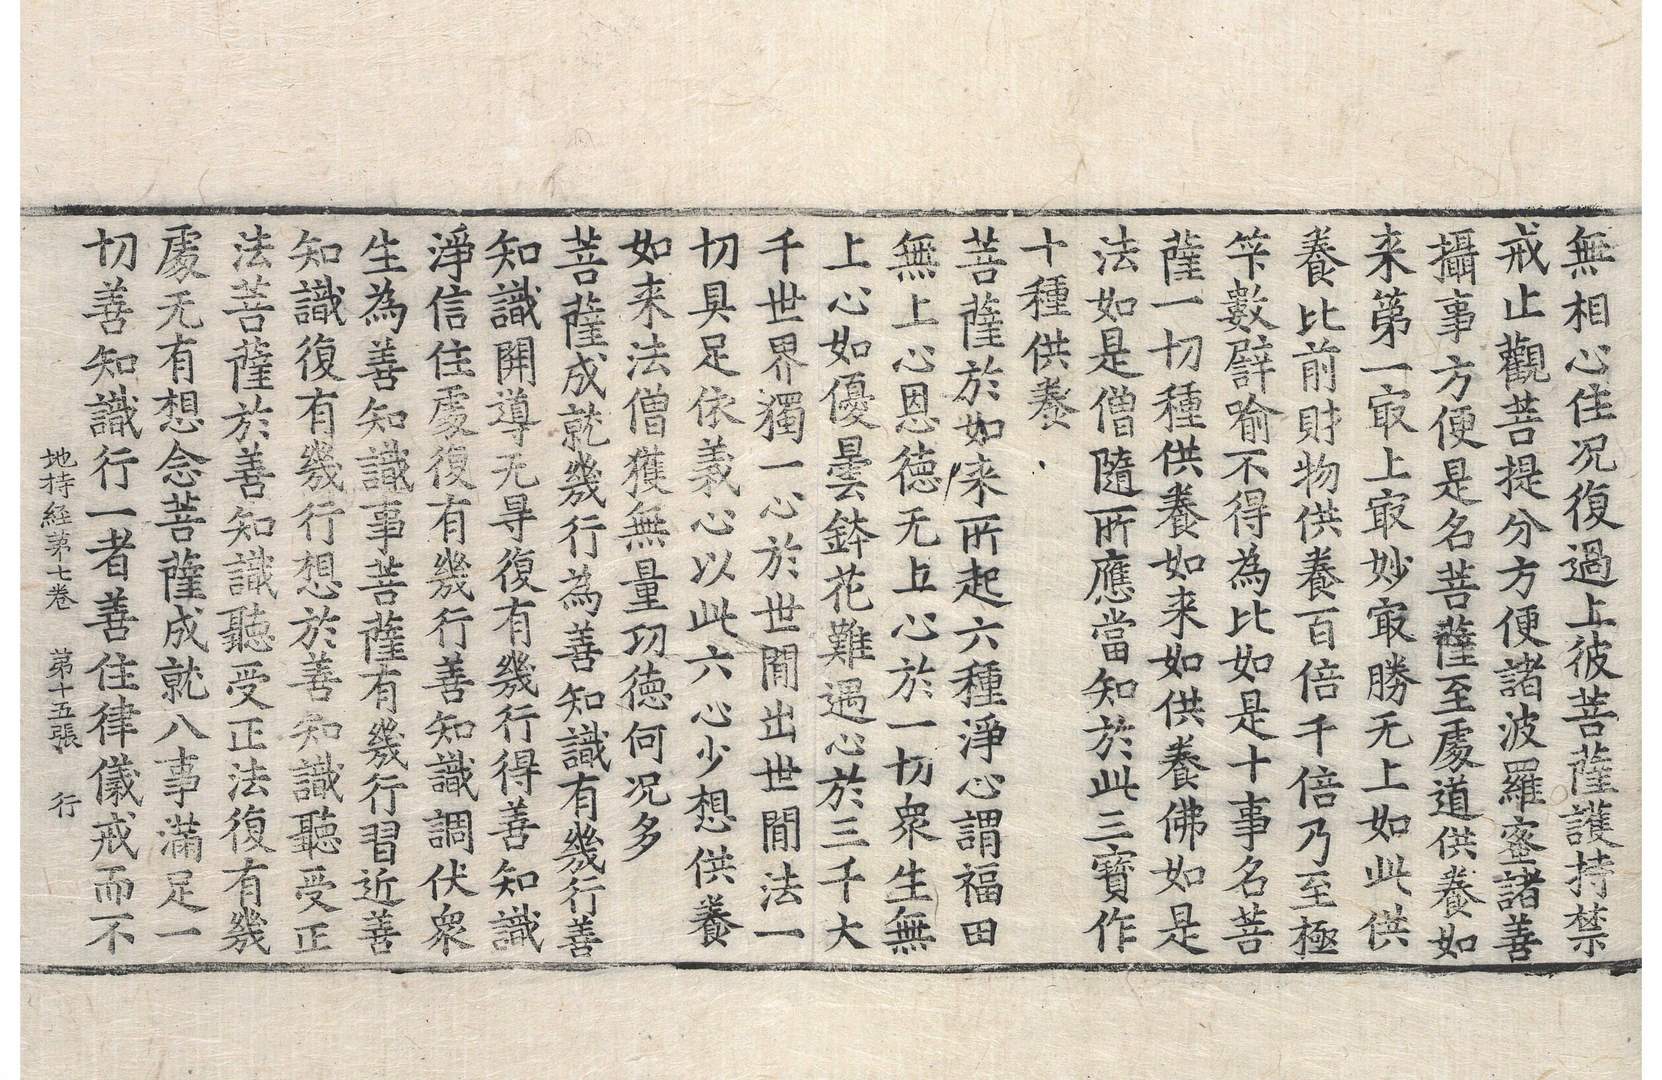 無相心住况復過上彼菩薩護持禁
戒止觀菩提分方便諸波羅蜜諸善
攝事方便是名菩薩至處道供養如
来苐一㝡上㝡妙㝡勝无上如此供
養比前財物供養百倍千倍乃至極
笇數譬喻不得為比如是十事名菩
薩一切種供養如来如供養佛如是
法如是僧隨所應當知於此三寶作
十種供養
菩薩於如来所起六種淨心謂福田
無上心恩德无上心於一切衆生無
上心如優曇鉢花難遇心於三千大
千世界獨一心於世間出世間法一
切具足依義心以此六心少想供養
如来法僧獲無量功德何况多
菩薩成就幾行為善知識有幾行善
知識開導无㝵復有幾行得善知識
淨信住處復有幾行善知識調伏衆
生為善知識事菩薩有幾行習近善
知識復有幾行想於善知識聽受正
法菩薩於善知識聽受正法復有幾
處无有想念菩薩成就八事滿足一
切善知識行一者善住律儀戒而不
地持経苐七卷 苐十五張 行